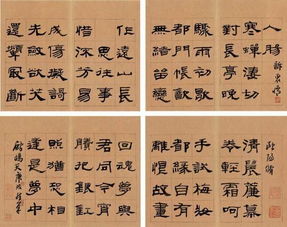 人腸 訴衷情
寒蟬淒切
對長亭晚
驟雨初歇
都門帳飲
無緒留戀
作遠山長
惜流芳易
成傷擬歌
先斂欲笑
還顰最斷
歐陽修
清晨簾幕
卷輕霜呵
手試梅妝
都緣自有
離恨故畫
回魂夢與
君同今宵
賸把銀釭
照猶恐相
逢是夢中
鷓鴣天